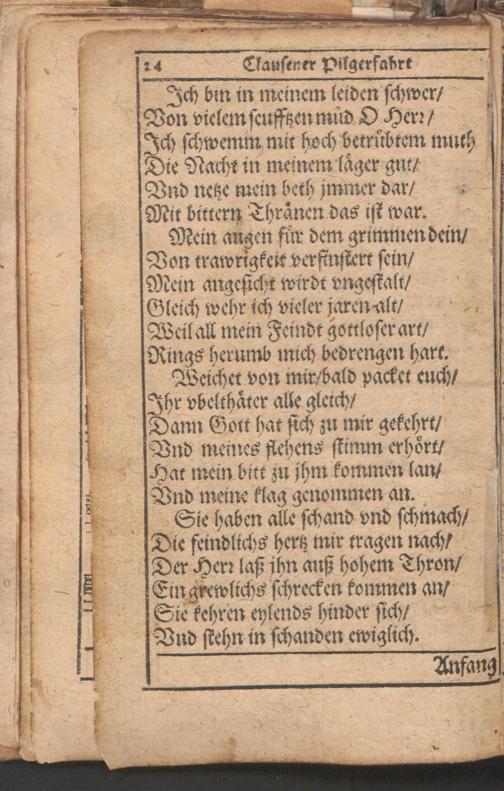 24 Clausener Pilgerfahrt
Ich bin in meinem leiden schwer/
Von vielem seufftzen müd O Herr/
Ich schwemm mit hoch betrübtem muth
Die Nacht in meinem läger gut/
Vnd netze mein beth jmmer dar/
Mit bittern Thränen das ist war.
Mein augen für dem grimmen dein/
Von trawrigkeit verfinstert sein/
Mein angesicht wirdt vngestalt/
Gleich wehr ich vieler jaren alt/
Weil all mein Feindt gottloser art/
Rings herumb mich bedrengen hart.
Weichet von mir/bald packet euch/
Ihr vbelthäter alle gleich/
Dann Gott hat sich zu mir gekehrt/
Vnd meines flehens stimm erhört/
Hat mein bitt zu jhm kommen lan/
Vnd meine klag genommen an.
Sie haben alle schand vnd schmach/
Die feindlichs hertz mir tragen nach/
Der Herr laß ihn auß hohem Thron/
Ein grewlichs schrecken kommen an/
Sie kehren eylends hinder sich/
Vnd stehn in schanden ewiglich.
Anfang